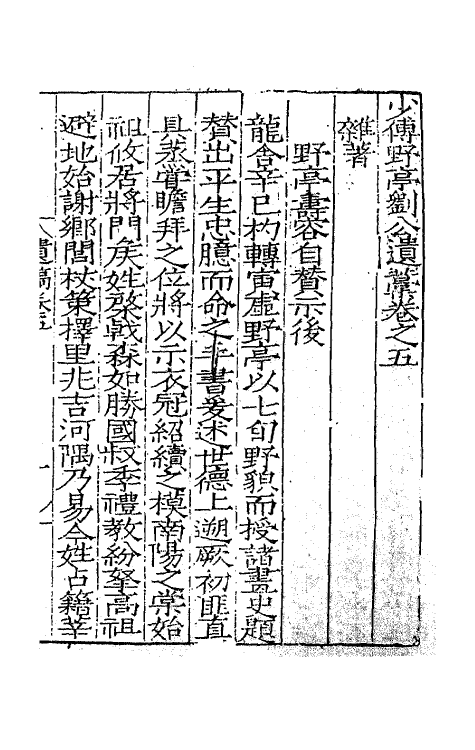 少傅野亭劉公遺藁卷之五
雜著
野亭壽容自賛示後
龍舍辛巳杓轉寅虛野亭以七旬野貌而授諸畫史題
賛出平生忠臆而命之手書爰述世德上遡厥初匪直
具蒸嘗瞻拜之位將以示衣冠紹續之模南陽之崇始
祖攸居將門矦姓棨戟森如勝國叔季禮教紛拏高祖
避地始謝鄉閭杖策擇里兆吉河隅乃易今姓占籍莘
遺稿卷五
一